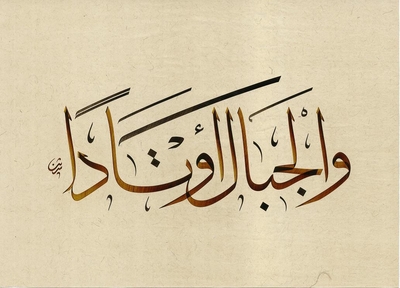 والجبال أوتادا